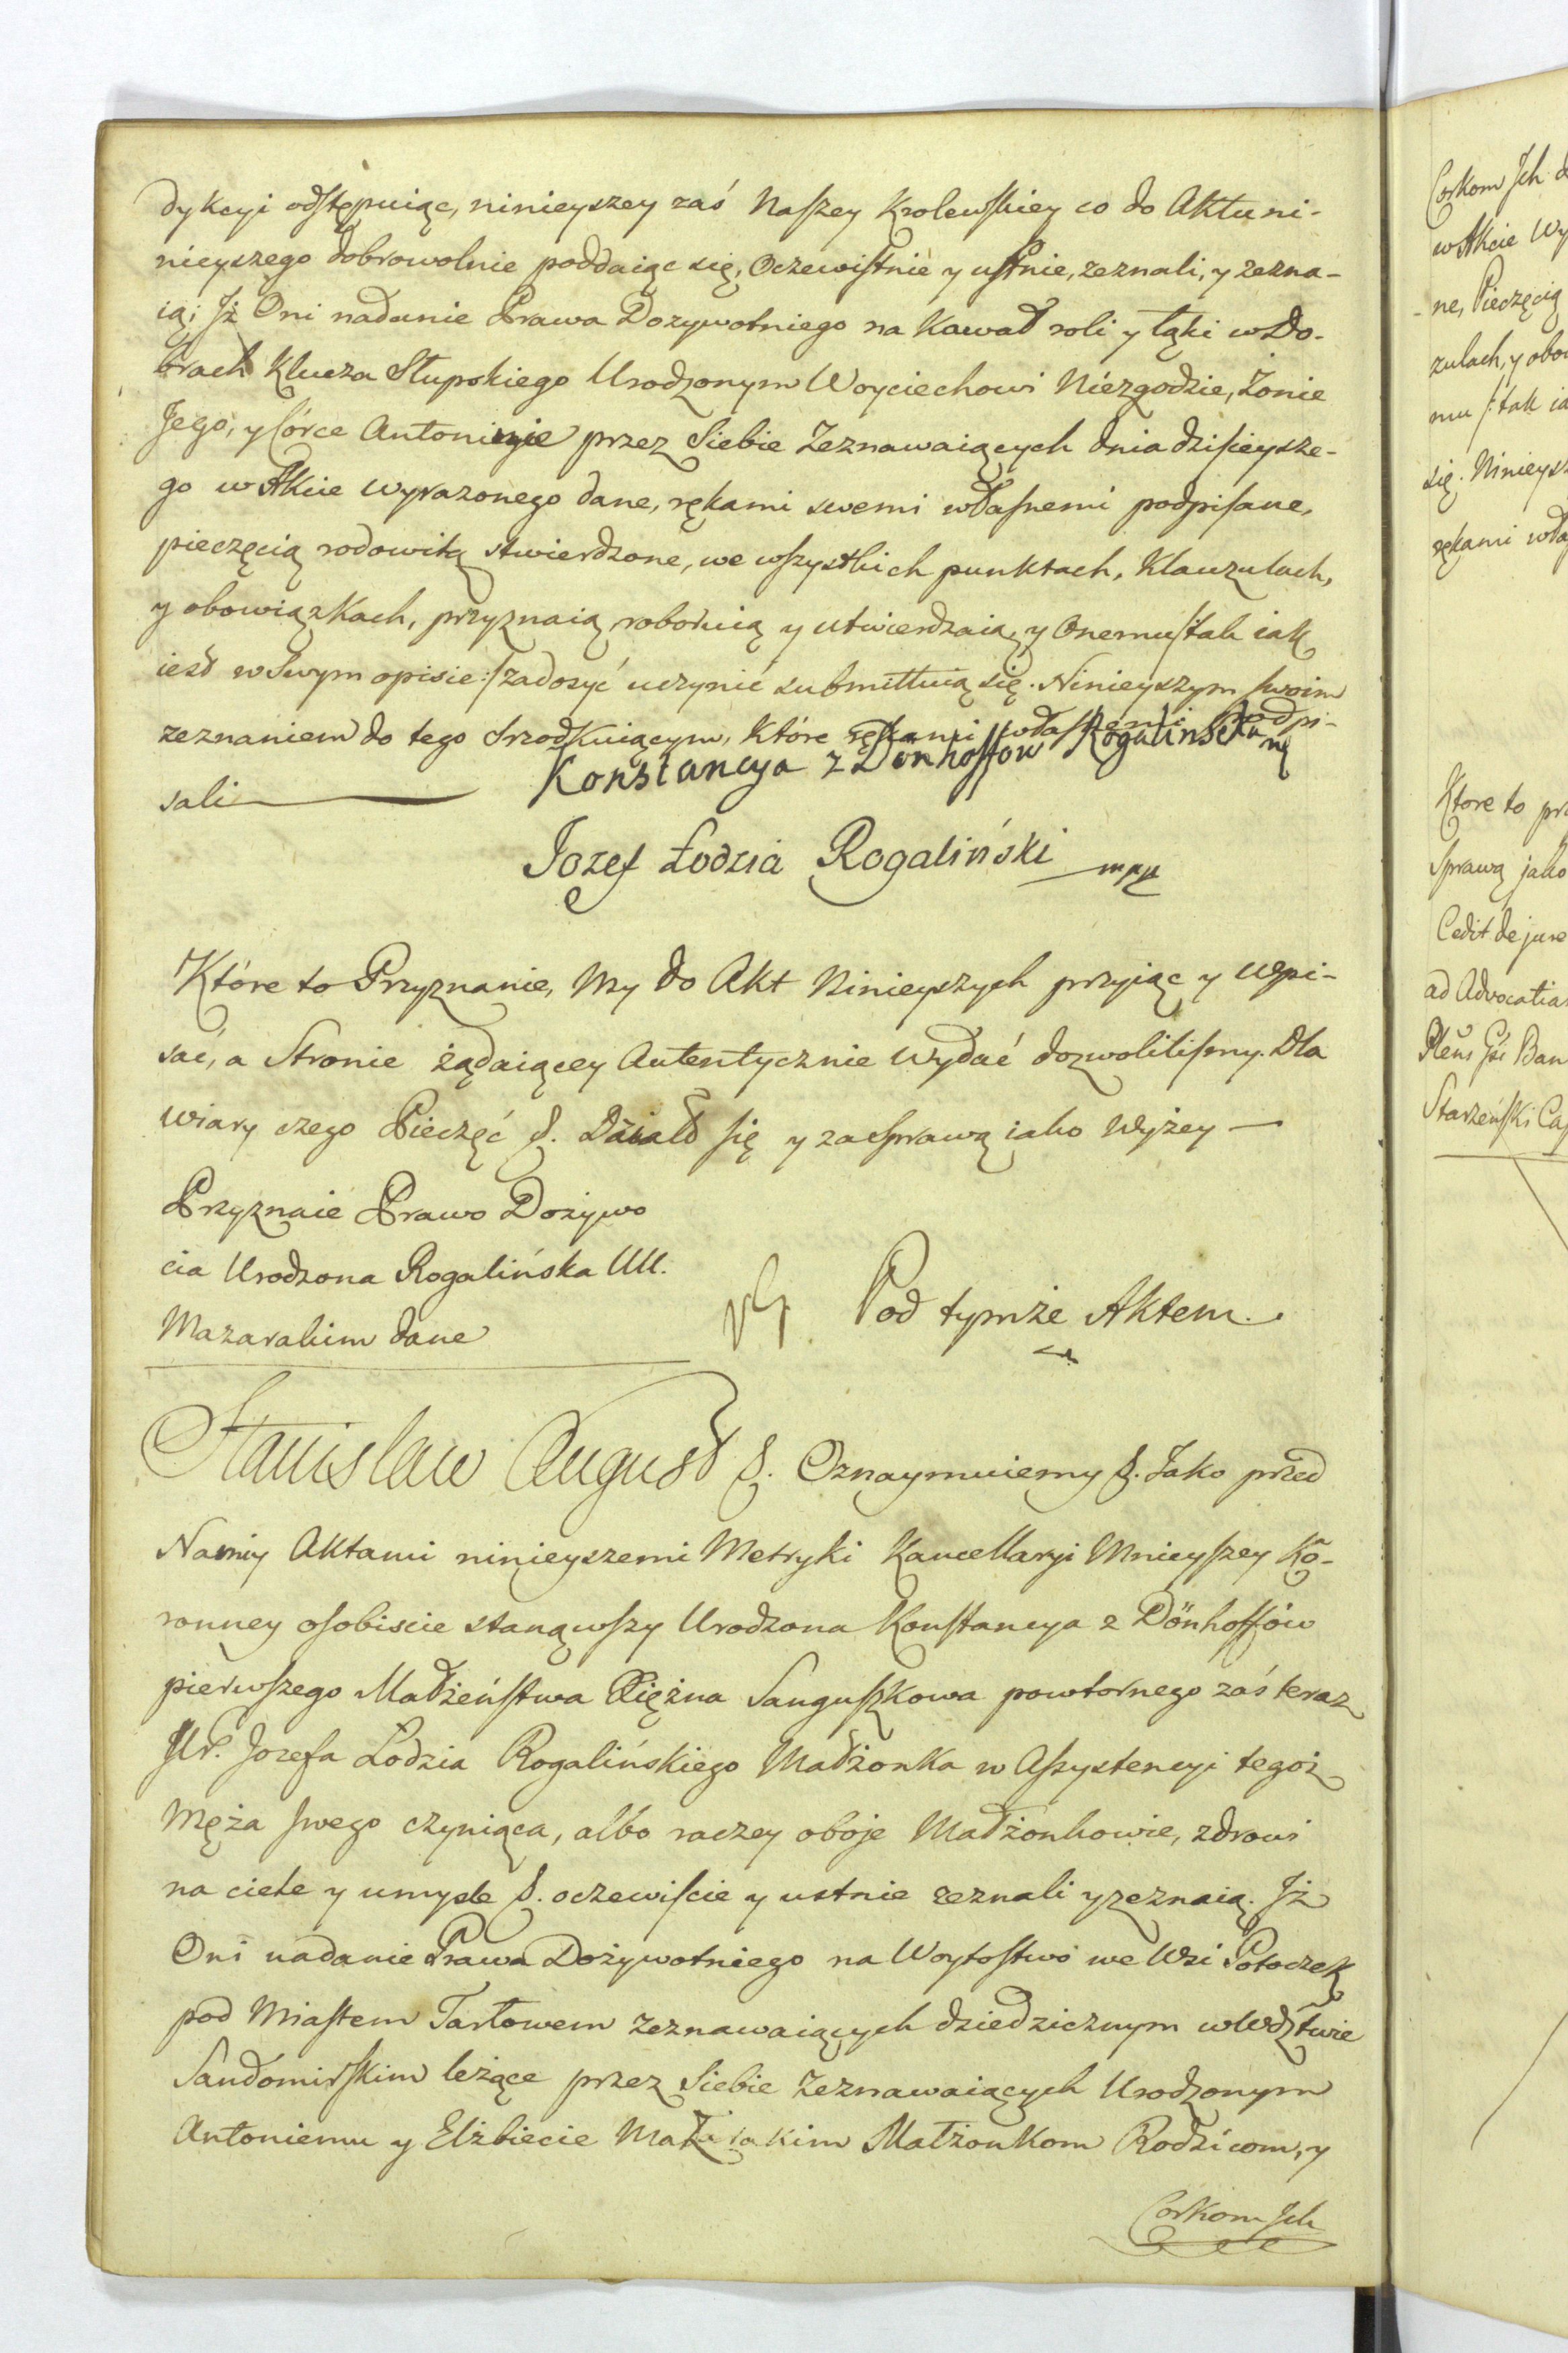 dykcyi odstępuiąc, ninieyszey zaś Naszey Krolewskiey co do Aktu ni-
nieyszego dobrowolnie poddaiąc się, Oczewistnie y ustnie, zeznali, y zezna-
ią; Jż Oni nadanie Prawa Dozywotniego na Kawał roli y łąki w Do-
brach Klucza Słupskiego Urodzonym Woyciechowi Niezgodzie, Żonie
Jego, y Córce Antoninie przez Siebie Zeznawaiących dnia dzisieysze-
go w Akcie wyrazonego dane, rękami swemi własnemi podpisane,
pieczęcią rodowitą stwierdzone, we wszystkich punktach, Klauzulach,
y obowiązkach, przyznaią roboruią y utwierdzaią, y Onemu /:tak iak
iest w Swym opisie:/ zadosyć uczynić submittuią się. Ninieyszym swoim
zeznaniem do tego srzodkuiącym, które rękami własnemi podpi-
sali
Konstancya z Dönhoffow Rogalinska
Jozef Łodzia Rogaliński mpp
Które to Przyznanie, My do Akt Ninieyszych przyiąc y wpi-
sać, a Stronie żądaiącey Autentycznie wydać dozwolilismy. Dla
wiary czego Pieczęć &. Działo się y za sprawą iako wyżey —
Przyznaie Prawo Dożywo
cia Urodzona Rogalińska UU.
Mazarakim dane
Pod tymże Aktem.
Stanisław August &. Oznaymuiemy &. Jako przed
Namy Aktami ninieyszemi Metryki Kancellaryi Mnieyszey Ko-
ronney osobiscie stanąwszy Urodzona Konstancya z Dönhoffów
pierwszego Małżeństwa Xiężna Sanguszkowa powtornego zaś teraz
Ur. Jozefa Łodzia Rogalińskiego Małżonka w Assystencyi tegoż
Męża swego czyniąca, albo raczey oboje Małżonkowie, zdrowi
na ciele y umyśle &. oczewiscie y ustnie zeznali y zeznaią. Jż
Oni nadanie Prawa Dożywotniego na Woytostwo we Wsi Potoczek
pod Miastem Tarłowem zeznawaiących dziedzicznym w Wdztwie
Sandomirskim leżące przez Siebie Zeznawaiących Urodzonym
Antoniemu y Elżbiecie Mazarakim Małżonkom Rodzicom, y
Corkom Jch
Corkom Jch
w Akcie
ne, Pieczęcią
zulach, y
mu /:tak
się.
rękami
Ktore to
Sprawą jako
Cedit de jure
ad